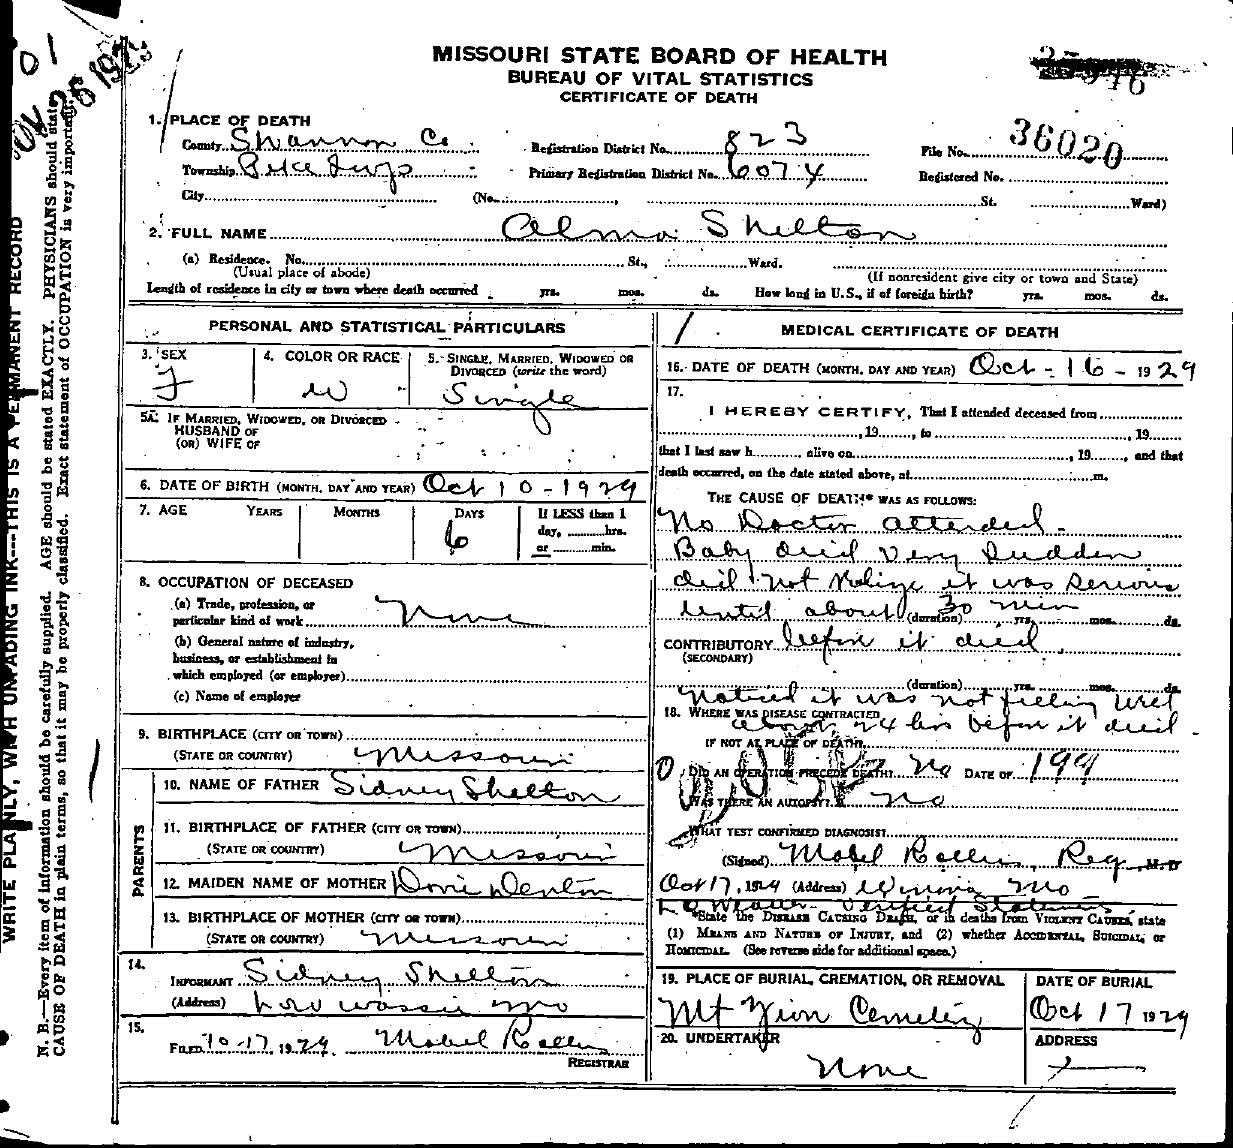 MISSOURI STATE BOARD OF HEALTH
BUREAU OF VITAL STATISTICS
CERTIFICATE OF DEATH
36020
1. PLACE OF DEATH
County Shannon Co Registration District No. 823 File No.
Township Primary Registration District No. 6074 Registered No.
City (No. St. Ward)
2. FULL NAME Alma Shelton
(a) Residence. No. St., Ward.
(Usual place of abode) (If nonresident give city or town and State)
Length of residence in city or town where death occurred yrs. mos. ds. How long in U.S., if of foreign birth? yrs. mos. ds.
PERSONAL AND STATISTICAL PARTICULARS
3. SEX 4. COLOR OR RACE 5. SINGLE, MARRIED, WIDOWED OR DIVORCED (write the word)
F W Single
5A. IF MARRIED, WIDOWED, OR DIVORCED
HUSBAND OF
(OR) WIFE OF
6. DATE OF BIRTH (MONTH, DAY AND YEAR) Oct 10-1929
7. AGE YEARS MONTHS DAYS If LESS than 1
day, ....hrs.
or ....min.
6
8. OCCUPATION OF DECEASED
(a) Trade, profession, or
particular kind of work None
(b) General nature of industry,
business, or establishment in
which employed (or employer)
(c) Name of employer
9. BIRTHPLACE (CITY OR TOWN)
(STATE OR COUNTRY) Missouri
PARENTS
10. NAME OF FATHER Sidney Shelton
11. BIRTHPLACE OF FATHER (CITY OR TOWN)
(STATE OR COUNTRY) Missouri
12. MAIDEN NAME OF MOTHER Denton
13. BIRTHPLACE OF MOTHER (CITY OR TOWN)
(STATE OR COUNTRY) Missouri
14.
INFORMANT Sidney Shelton
(Address) Low wassie Mo
15.
FILED 10-17, 1929 Mabel Rollins
REGISTRAR
MEDICAL CERTIFICATE OF DEATH
16. DATE OF DEATH (MONTH, DAY AND YEAR) Oct-16-1929
17.
I HEREBY CERTIFY, That I attended deceased from
, 19......, to , 19......
that I last saw h...... alive on , 19......, and that
death occurred, on the date stated above, at m.
THE CAUSE OF DEATH* WAS AS FOLLOWS:
No Doctor attended.
Baby died very sudden
did not it was serious
until about 30 min
(duration) yrs. mos. ds.
CONTRIBUTORY before it died
(SECONDARY)
(duration) yrs. mos. ds.
Noticed it was not feeling well
18. WHERE WAS DISEASE CONTRACTED
about 24 hrs before it died.
IF NOT AT PLACE OF DEATH?
DID AN OPERATION PRECEDE DEATH? No DATE OF 199
WAS THERE AN AUTOPSY? No
WHAT TEST CONFIRMED DIAGNOSIS?
(Signed) Mabel Rollins, Reg, M.D
Oct 17, 1929 (Address) Winona Mo
Verified Statements
*State the DISEASE CAUSING DEATH, or in deaths from VIOLENT CAUSES, state
(1) MEANS AND NATURE OF INJURY, and (2) whether ACCIDENTAL, SUICIDAL, or
HOMICIDAL. (See reverse side for additional space.)
19. PLACE OF BURIAL, CREMATION, OR REMOVAL DATE OF BURIAL
Mt Zion Cemetery Oct 17 1929
20. UNDERTAKER ADDRESS
None
WRITE PLAINLY, WITH UNFADING INK---THIS IS A PERMANENT RECORD
N. B.—Every item of information should be carefully supplied. AGE should be stated EXACTLY. PHYSICIANS should state
CAUSE OF DEATH in plain terms, so that it may be properly classified. Exact statement of OCCUPATION is very important.